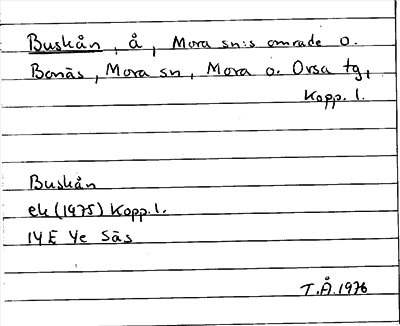 Buskån, å, Mora sn:s område o.
Bonäs, Mora sn, Mora o. Orsa tg,
Kopp. l.
Buskån
ek (1975) Kopp. l.
14E Ye Sås
T.Å. 1976